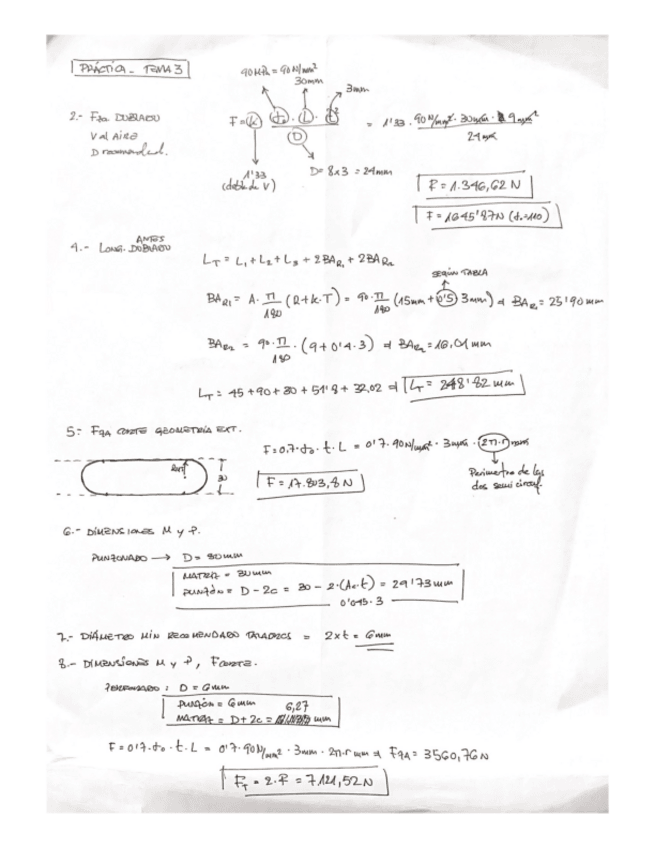 PRÁCTICA - TEMA 3
90 MPa = 90 N/mm²
30mm
3mm
2.- Fza DOBLADO
V al AIRE
D recomended.
F = K · σ · L · t² / D = 1'33 · 90 N/mm² · 30mm · 9 mm² / 24 mm
1'33
(doblado V)
D = 8 x 3 = 24mm
F = 1.346,62 N
4.- LONG. ANTES DOBLADO
L_T = L₁ + L₂ + L₃ + 2BA_R1 + 2BA_R2
SEGÚN TABLA
BA_R1 = A · π/180 (R + k·T) = 90 · π/180 (15mm + 0'5 3mm) ⇒ BA_R1 = 25'90 mm
BA_R2 = 90 · π/180 · (9 + 0'4 · 3) ⇒ BA_R2 = 16,01 mm
L_T = 45 + 90 + 30 + 51'8 + 32,02 ⇒ L_T = 248'82 mm
5.- FZA CORTE GEOMETRÍA EXT.
F = 0.7 · σ₀ · t · L = 0'7 · 90 N/mm² · 3mm · (2π·r) mm
30
Perímetro de las
dos semicircuf.
F = 17.803,8 N
6.- DIMENSIONES M y P.
PUNZONADO → D = 30mm
MATRIZ = 30mm
PUNZÓN = D - 2c = 30 - 2·(Ac·t) = 29'73 mm
0'045·3
7.- DIÁMETRO MIN RECOMENDADO TALADROS = 2xt = 6mm
8.- DIMENSIONES M y P, FCORTE.
PERFORADO: D = 6mm
PUNZÓN = 6mm
6,27
MATRIZ = D + 2c = mm
F = 0'7 · σ₀ · t · L = 0'7 · 90 N/mm² · 3mm · 2π·r mm ⇒ FZA = 3560,76 N
F_T = 2·F = 7.121,52 N